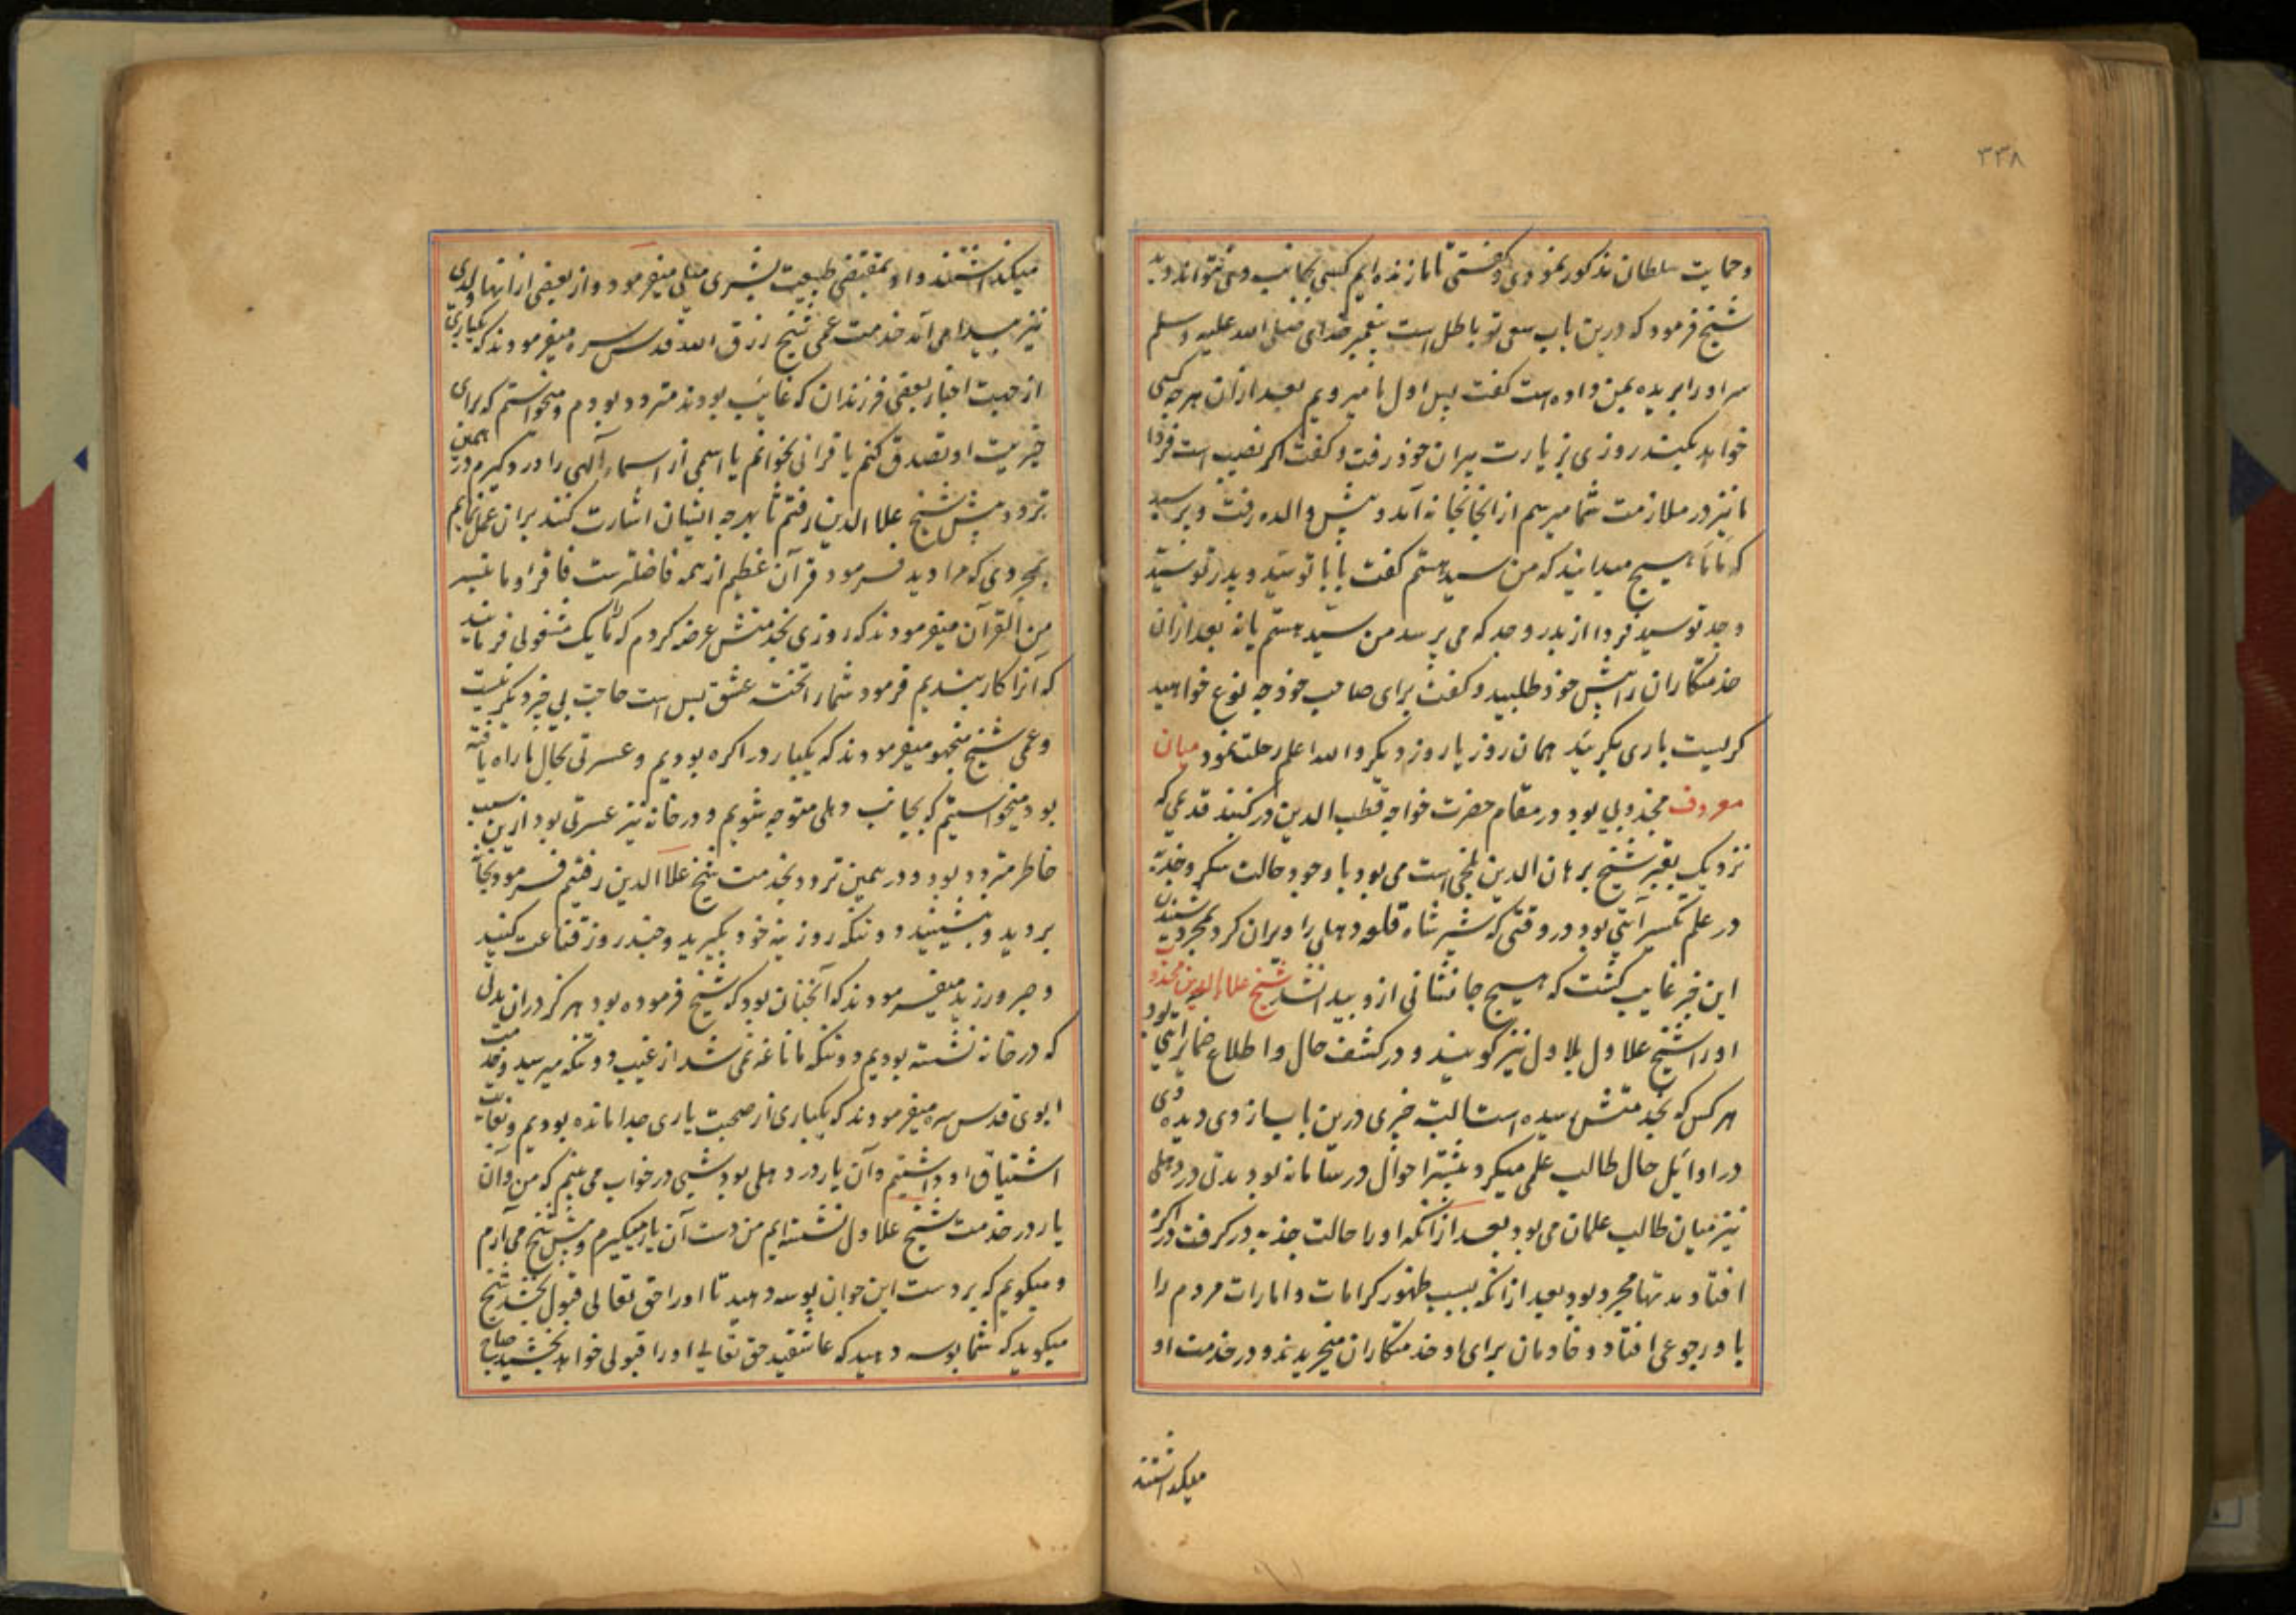 ۳۳۸
و حمایت سلطان مذکور نمودی و گفتی تا ما زنده ایم کسی بجانب دهلی نتواند دید
شیخ فرمود که درین باب سعی تو باطل است پیغمبر خدای صلی الله علیه وسلم
سر او را بریده بمن داده است گفت پس اول ما میرویم بعد ازان هر چه کسی
خواهد بکند روزی بزیارت پیران خود رفت و گفت اگر نصیب است فردا
ما نیز در ملازمت شما میرسم از انجا بخانه آمد و پیش والده رفت و پرسید
که ماما هیچ میدانید که من سید هستم گفت بابا تو سید و پدر تو سید
و جد تو سید فردا از پدر و جد که می پرسد من سید هستم یا نه بعد ازان
خدمتکاران را پیش خود طلبید و گفت برای صاحب خود چه نوع خواهید
گریست باری بگریید همان روز یا روز دیگر والله اعلم رحلت نمود میان
معروف مجذوبی بود در مقام حضرت خواجه قطب الدین در گنبد قدیمی که
نزدیک بقبر شیخ برهان الدین بلخی است می بود با وجود حالت سکر و جذبه
در علم تکسیر آیتی بود در وقتی که شیر شاه قلعه دهلی را ویران کرد بمجرد شنیدن
این خبر غایب گشت که هیچ جا نشانی ازو پیدا نشد شیخ علاء الدین مجذوب
او را شیخ علاول بلاول نیز گویند و در کشف حال و اطلاع ضمایر آیتی بود
هر کس که بخدمتش رسیده است البته خبری درین باب از وی دیده وی
در اوائل حال طالب علمی میکرد و بیشتر احوال در سامانه بود مدتی در دهلی
نیز میان طالب علمان می بود بعد از آنکه او را حالت جذبه در گرفت در اگره
افتاد مدتها مجرد بود بعد از آنکه بسبب ظهور کرامات و امارات مردم را
با و رجوعی افتاد و خادمان برای او خدمتکاران میخریدند و در خدمت او
میگذاشتند
میگذاشتند و او بمقتضی طبیعت بشری میلی میفرمود و از بعضی از انها ولدی
نیز پیدا می آمد خدمت عمی شیخ رزق الله قدس سره میفرمودند که یکباری
از جهت اخبار بعضی فرزندان که غایب بودند متردد بودم و میخواستم که برای
خیریت او تصدق کنم یا قرانی بخوانم یا اسمی از اسماء آلهی را ورد گیرم درین همین
تردد پیش شیخ علاالدین رفتم تا بهر چه ایشان اشارت کنند بران عمل نمایم
بمجردی که مرا دید فرمود قرآن عظیم از همه فاضلترست فاقراوا ما تیسر
من القرآن میفرمودند که روزی بخدمتش عرضه کردم که ما را یک مشغولی فرمایید
که آنرا کار بندیم فرمود شما را تخته عشق بس است حاجت بی چیز دیگر نیست
و عمی شیخ منجهو میفرمودند که یکبار در اکره بودیم و عسرتی بحال ما راه یافته
بود میخواستیم که بجانب دهلی متوجه شویم و در خانه نیز عسرتی بود ازین سبب
خاطر متردد بود و در همین تردد بخدمت شیخ علاالدین رفتیم فرمود بخانه
بروید و بنشینید و دو تنکه روزینه خود بگیرید و چند روز قناعت کنید
و صبر ورزید میفرمودند که آنچنان بود که شیخ فرموده بود هرگز دران مدتی
که در خانه نشسته بودیم دو تنکه ما ناغه نمی شد از غیب دو تنکه میرسید و خدمت
ابوی قدس سره میفرمودند که یکباری از صحبت یاری جدا مانده بودیم و بغایت
اشتیاق او داشتیم و آن یار در دهلی بود شبی در خواب می بینم که من و آن
یار در خدمت شیخ علاول نشسته ایم من دست آن یار میگیرم و پیش شیخ می آرم
و میگویم که بر دست این جوان بوسه دهید تا او را حق تعالی قبول بخشد شیخ
میگوید که شما بوسه دهید که عاشقید حق تعالی او را قبولی خواهد بخشید صباح